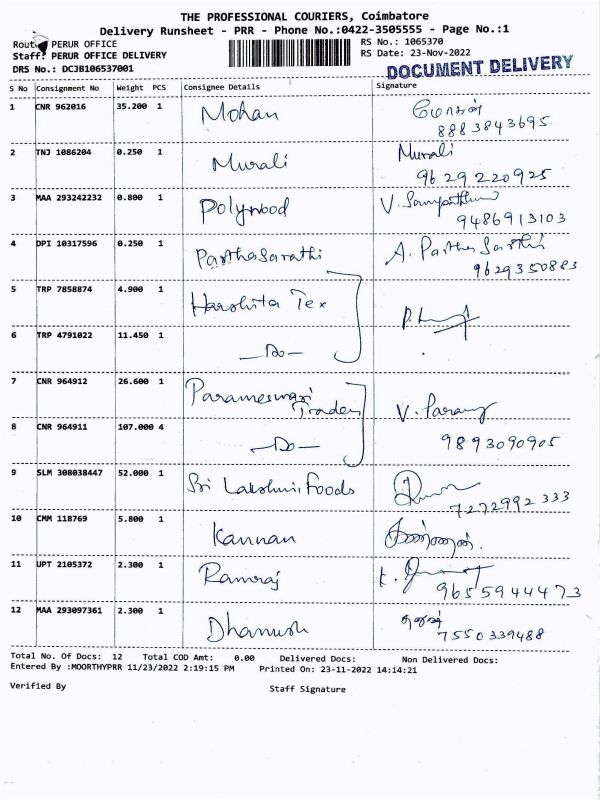 THE PROFESSIONAL COURIERS, Coimbatore
Delivery Runsheet - PRR - Phone No.:0422-3505555 - Page No.:1
PERUR OFFICE
RS No.: 1065370
Staff: PERUR OFFICE DELIVERY
RS Date: 23-Nov-2022
DRS No.: DCJB106537001
DOCUMENT DELIVERY
S No Consignment No Weight PCS Consignee Details Signature
1 CNR 962016 35.200 1 Mohan மோகன்
8883843695
2 TNJ 1086204 0.250 1 Murali Murali
9629220925
3 MAA 293242232 0.800 1 Polywood V. Sampathkumar
9486913103
4 DPI 10317596 0.250 1 Parthasarathi A. Parthasarathi
9629350883
5 TRP 7858874 4.900 1 Harshita Tex
6 TRP 4791022 11.450 1 —Do—
7 CNR 964912 26.600 1 Parameswari
Traders
8 CNR 964911 107.000 4 —Do— 9893090905
9 SLM 308038447 52.000 1 Sri Lakshmi Foods
7272992333
10 CMM 118769 5.800 1 Kannan கண்ணன்.
11 UPT 2105372 2.300 1 Ramraj
9655944473
12 MAA 293097361 2.300 1 Dhanush தனுஷ்
7550339488
Total No. Of Docs: 12 Total COD Amt: 0.00 Delivered Docs: Non Delivered Docs:
Entered By :MOORTHYPRR 11/23/2022 2:19:15 PM Printed On: 23-11-2022 14:14:21
Verified By Staff Signature